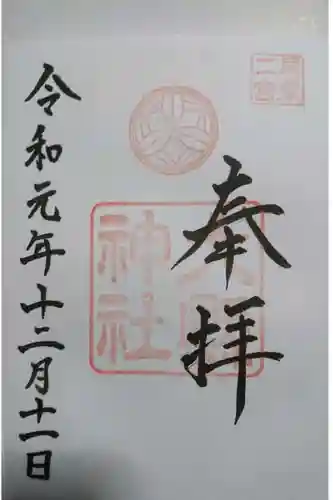 奉拝
大縣
神社
令和元年十二月十一日